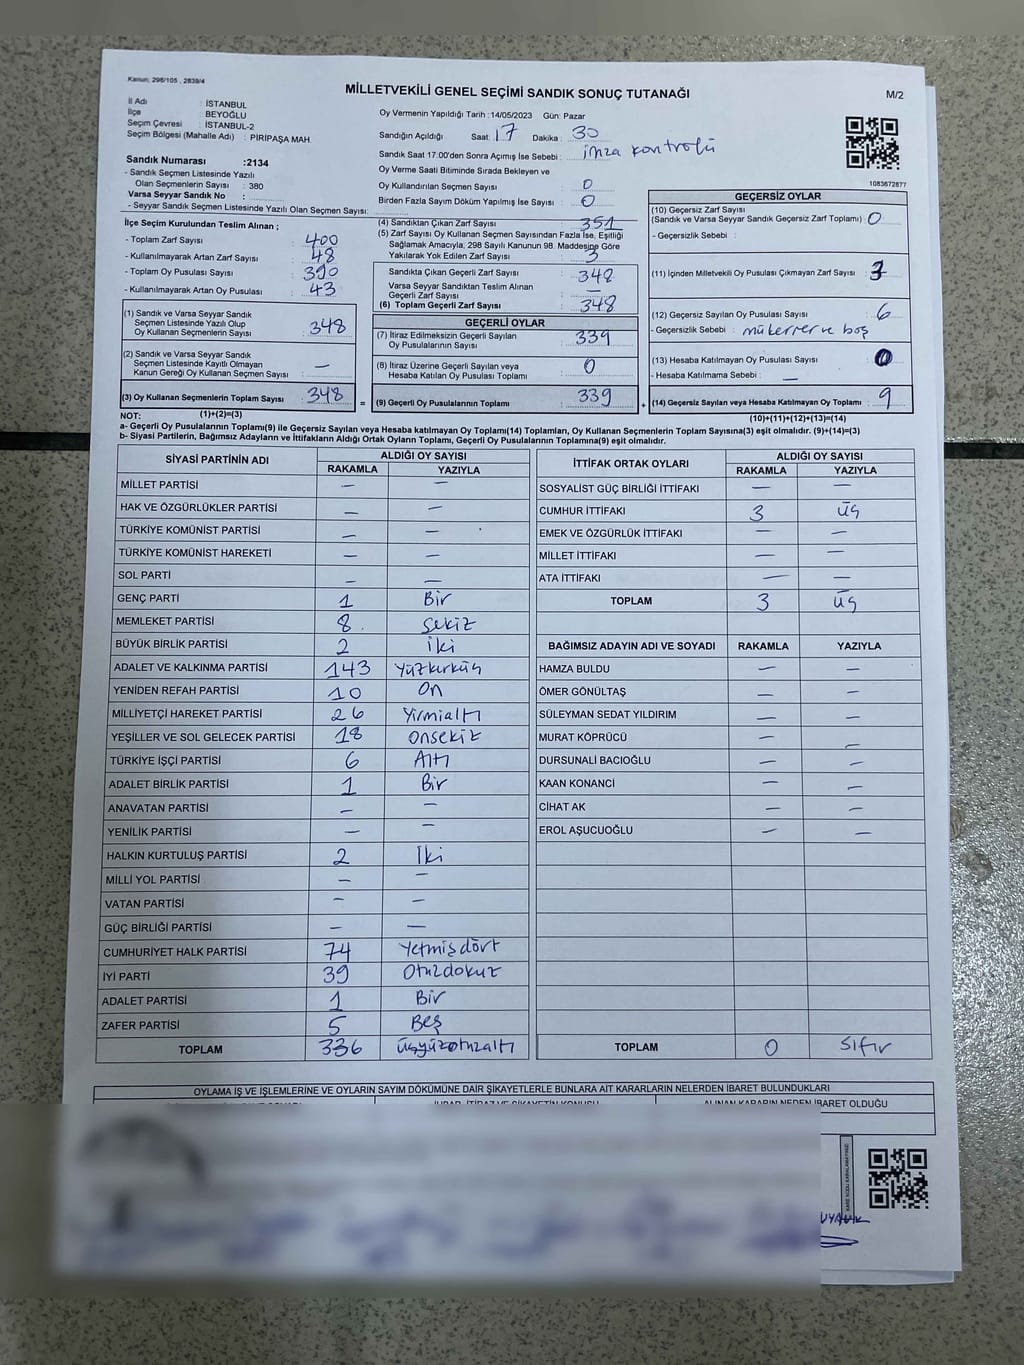 Kanun: 298/105 , 2839/4
MİLLETVEKİLİ GENEL SEÇİMİ SANDIK SONUÇ TUTANAĞI
M/2
İl Adı : İSTANBUL
İlçe : BEYOĞLU
Seçim Çevresi : İSTANBUL-2
Seçim Bölgesi (Mahalle Adı) : PİRİPAŞA MAH.
Sandık Numarası :2134
- Sandık Seçmen Listesinde Yazılı
Olan Seçmenlerin Sayısı : 380
Varsa Seyyar Sandık No :
- Seyyar Sandık Seçmen Listesinde Yazılı Olan Seçmen Sayısı:
Oy Vermenin Yapıldığı Tarih :14/05/2023 Gün: Pazar
Sandığın Açıldığı Saat: 17 Dakika : 30
Sandık Saat 17:00'den Sonra Açımış İse Sebebi : imza kontrolü
Oy Verme Saati Bitiminde Sırada Bekleyen ve
Oy Kullandırılan Seçmen Sayısı : 0
Birden Fazla Sayım Döküm Yapılmış İse Sayısı : 0
1083672877
İlçe Seçim Kurulundan Teslim Alınan ;
- Toplam Zarf Sayısı : 400
- Kullanılmayarak Artan Zarf Sayısı : 48
- Toplam Oy Pusulası Sayısı : 390
- Kullanılmayarak Artan Oy Pusulası : 43
(1) Sandık ve Varsa Seyyar Sandık
Seçmen Listesinde Yazılı Olup
Oy Kullanan Seçmenlerin Sayısı : 348
(2) Sandık ve Varsa Seyyar Sandık
Seçmen Listesinde Kayıtlı Olmayan
Kanun Gereği Oy Kullanan Seçmen Sayısı : —
(3) Oy Kullanan Seçmenlerin Toplam Sayısı : 348 =
(4) Sandıktan Çıkan Zarf Sayısı : 351
(5) Zarf Sayısı Oy Kullanan Seçmen Sayısından Fazla İse, Eşitliği
Sağlamak Amacıyla, 298 Sayılı Kanunun 98. Maddesine Göre
Yakılarak Yok Edilen Zarf Sayısı : 3
Sandıkta Çıkan Geçerli Zarf Sayısı : 348
Varsa Seyyar Sandıktan Teslim Alınan
Geçerli Zarf Sayısı : —
(6) Toplam Geçerli Zarf Sayısı : 348
GEÇERLİ OYLAR
(7) İtiraz Edilmeksizin Geçerli Sayılan
Oy Pusulalarının Sayısı : 339
(8) İtiraz Üzerine Geçerli Sayılan veya
Hesaba Katılan Oy Pusulası Toplamı : 0
(9) Geçerli Oy Pusulalarının Toplamı : 339 +
GEÇERSİZ OYLAR
(10) Geçersiz Zarf Sayısı
(Sandık ve Varsa Seyyar Sandık Geçersiz Zarf Toplamı) : 0
- Geçersizlik Sebebi :
(11) İçinden Milletvekili Oy Pusulası Çıkmayan Zarf Sayısı : 3
(12) Geçersiz Sayılan Oy Pusulası Sayısı : 6
- Geçersizlik Sebebi : mükerrer ve boş
(13) Hesaba Katılmayan Oy Pusulası Sayısı : 0
- Hesaba Katılmama Sebebi : —
(14) Geçersiz Sayılan veya Hesaba Katılmayan Oy Toplamı : 9
NOT: (1)+(2)=(3) (10)+(11)+(12)+(13)=(14)
a- Geçerli Oy Pusulalarının Toplamı(9) ile Geçersiz Sayılan veya Hesaba katılmayan Oy Toplamı(14) Toplamları, Oy Kullanan Seçmenlerin Toplam Sayısına(3) eşit olmalıdır. (9)+(14)=(3)
b- Siyasi Partilerin, Bağımsız Adayların ve İttifakların Aldığı Ortak Oyların Toplamı, Geçerli Oy Pusulalarının Toplamına(9) eşit olmalıdır.
SİYASİ PARTİNİN ADI ALDIĞI OY SAYISI
RAKAMLA YAZIYLA
MİLLET PARTİSİ — —
HAK VE ÖZGÜRLÜKLER PARTİSİ — —
TÜRKİYE KOMÜNİST PARTİSİ — —
TÜRKİYE KOMÜNİST HAREKETİ — —
SOL PARTİ — —
GENÇ PARTİ 1 Bir
MEMLEKET PARTİSİ 8 Sekiz
BÜYÜK BİRLİK PARTİSİ 2 İki
ADALET VE KALKINMA PARTİSİ 143 Yüzkırküç
YENİDEN REFAH PARTİSİ 10 On
MİLLİYETÇİ HAREKET PARTİSİ 26 Yirmialtı
YEŞİLLER VE SOL GELECEK PARTİSİ 18 Onsekiz
TÜRKİYE İŞÇİ PARTİSİ 6 Altı
ADALET BİRLİK PARTİSİ 1 Bir
ANAVATAN PARTİSİ — —
YENİLİK PARTİSİ — —
HALKIN KURTULUŞ PARTİSİ 2 İki
MİLLİ YOL PARTİSİ — —
VATAN PARTİSİ — —
GÜÇ BİRLİĞİ PARTİSİ — —
CUMHURİYET HALK PARTİSİ 74 Yetmişdört
İYİ PARTİ 39 Otuzdokuz
ADALET PARTİSİ 1 Bir
ZAFER PARTİSİ 5 Beş
TOPLAM 336 üçyüzotuzaltı
İTTİFAK ORTAK OYLARI ALDIĞI OY SAYISI
RAKAMLA YAZIYLA
SOSYALİST GÜÇ BİRLİĞİ İTTİFAKI — —
CUMHUR İTTİFAKI 3 üç
EMEK VE ÖZGÜRLÜK İTTİFAKI — —
MİLLET İTTİFAKI — —
ATA İTTİFAKI — —
TOPLAM 3 üç
BAĞIMSIZ ADAYIN ADI VE SOYADI RAKAMLA YAZIYLA
HAMZA BULDU — —
ÖMER GÖNÜLTAŞ — —
SÜLEYMAN SEDAT YILDIRIM — —
MURAT KÖPRÜCÜ — —
DURSUNALİ BACIOĞLU — —
KAAN KONANCI — —
CİHAT AK — —
EROL AŞUCUOĞLU — —
TOPLAM 0 Sıfır
OYLAMA İŞ VE İŞLEMLERİNE VE OYLARIN SAYIM DÖKÜMÜNE DAİR ŞİKAYETLERLE BUNLARA AİT KARARLARIN NELERDEN İBARET BULUNDUKLARI
İHBAR, İTİRAZ VE ŞİKAYETİN KONUSU ALINAN KARARIN NEDEN İBARET OLDUĞU